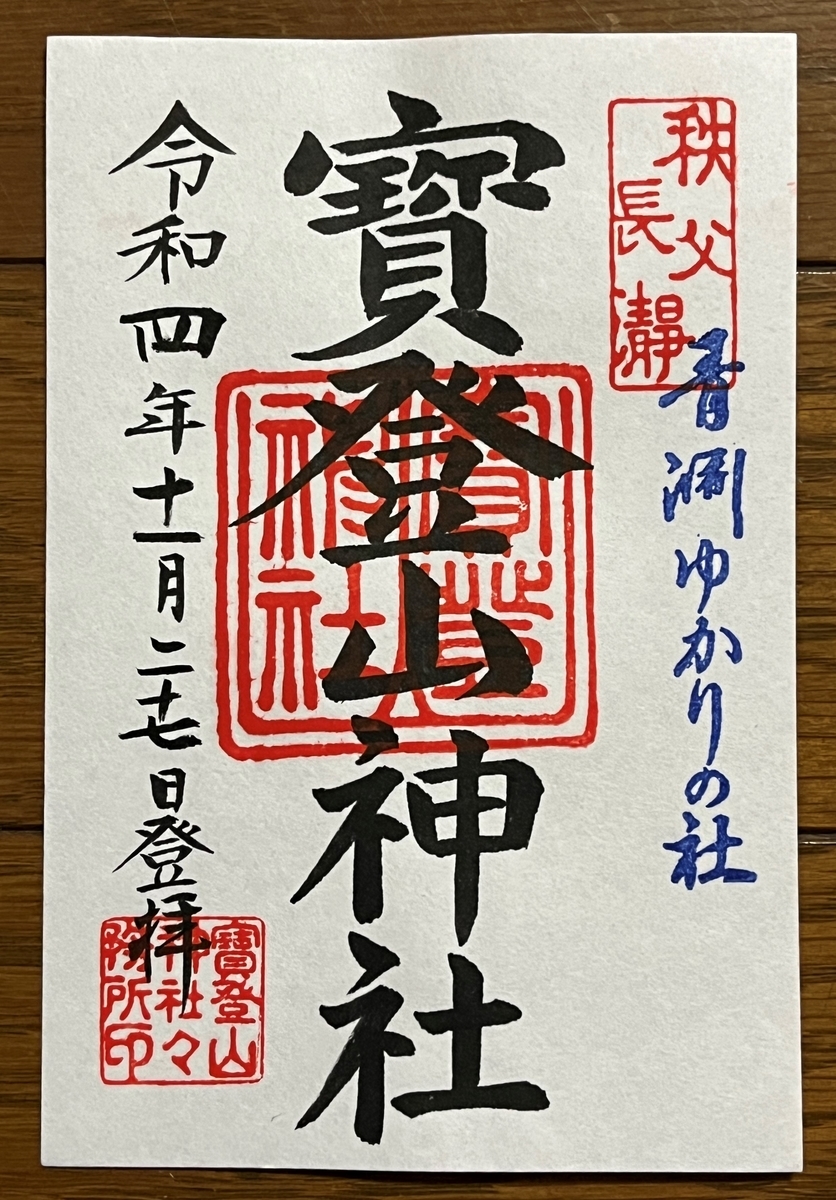 秩父
長瀞
青淵ゆかりの社
寶登山神社
寶登山神社
令和四年十一月二十七日登拝
寶登山
神社々
務所印